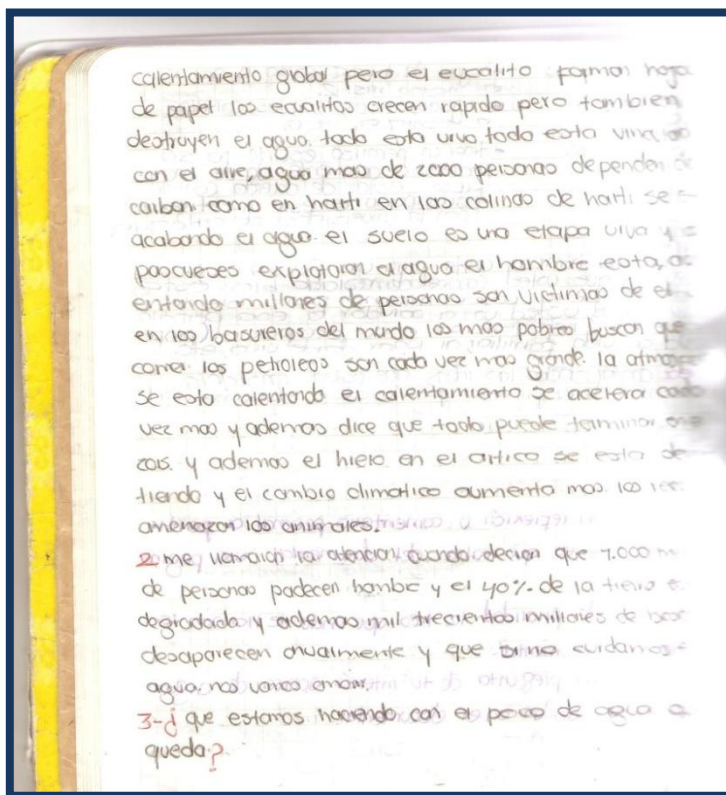 calentamiento global pero el eucalito forman hoja
de papel los ecualitos crecen rapido pero tambien
destruyen el agua. todo esta vivo todo esta
con el aire, agua mas de 2000 personas dependen de
carbon como en haiti en las colinas de haiti se
acabando el agua. el suelo es una etapa viva y
explotaran el agua el hombre esta,
entando millones de personas son victimas de el
en los basureros del mundo los mas pobres buscan que
comer los petroleos son cada vez mas grande. la
se esta calentando el calentamiento se acelera cada
vez mas y ademas dice que todo puede terminar
y ademas el hielo en el artico se esta de
tiendo y el cambio climatico aumenta mas. los
amenazan los animales.
2 me llamaron la atencion cuando decian que 7.000
de personas padecen hambe y el 40% de la tierra
degradada y ademas mil trecientos millones de
desaparecen anualmente y que sino cuidamos
agua nos vamos
3-¿ que estamos haciendo con el poco de agua q
queda?